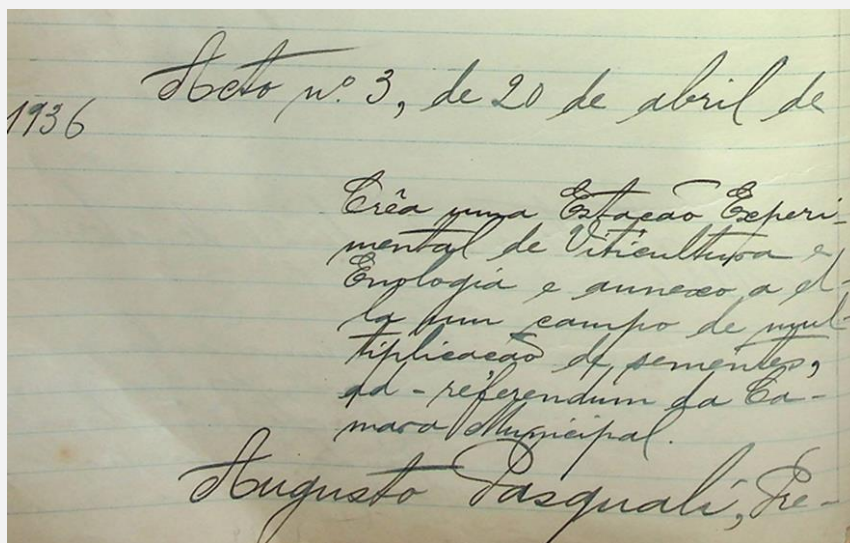 Acto nº. 3, de 20 de abril de
1936
Crêa uma Estação Experi-
mental de Viticultura e
Enologia e annexo a el-
la um campo de mul-
tiplicação de sementes,
ad-referendum da Ca-
mara Municipal.
Augusto Pasquali, Pre-